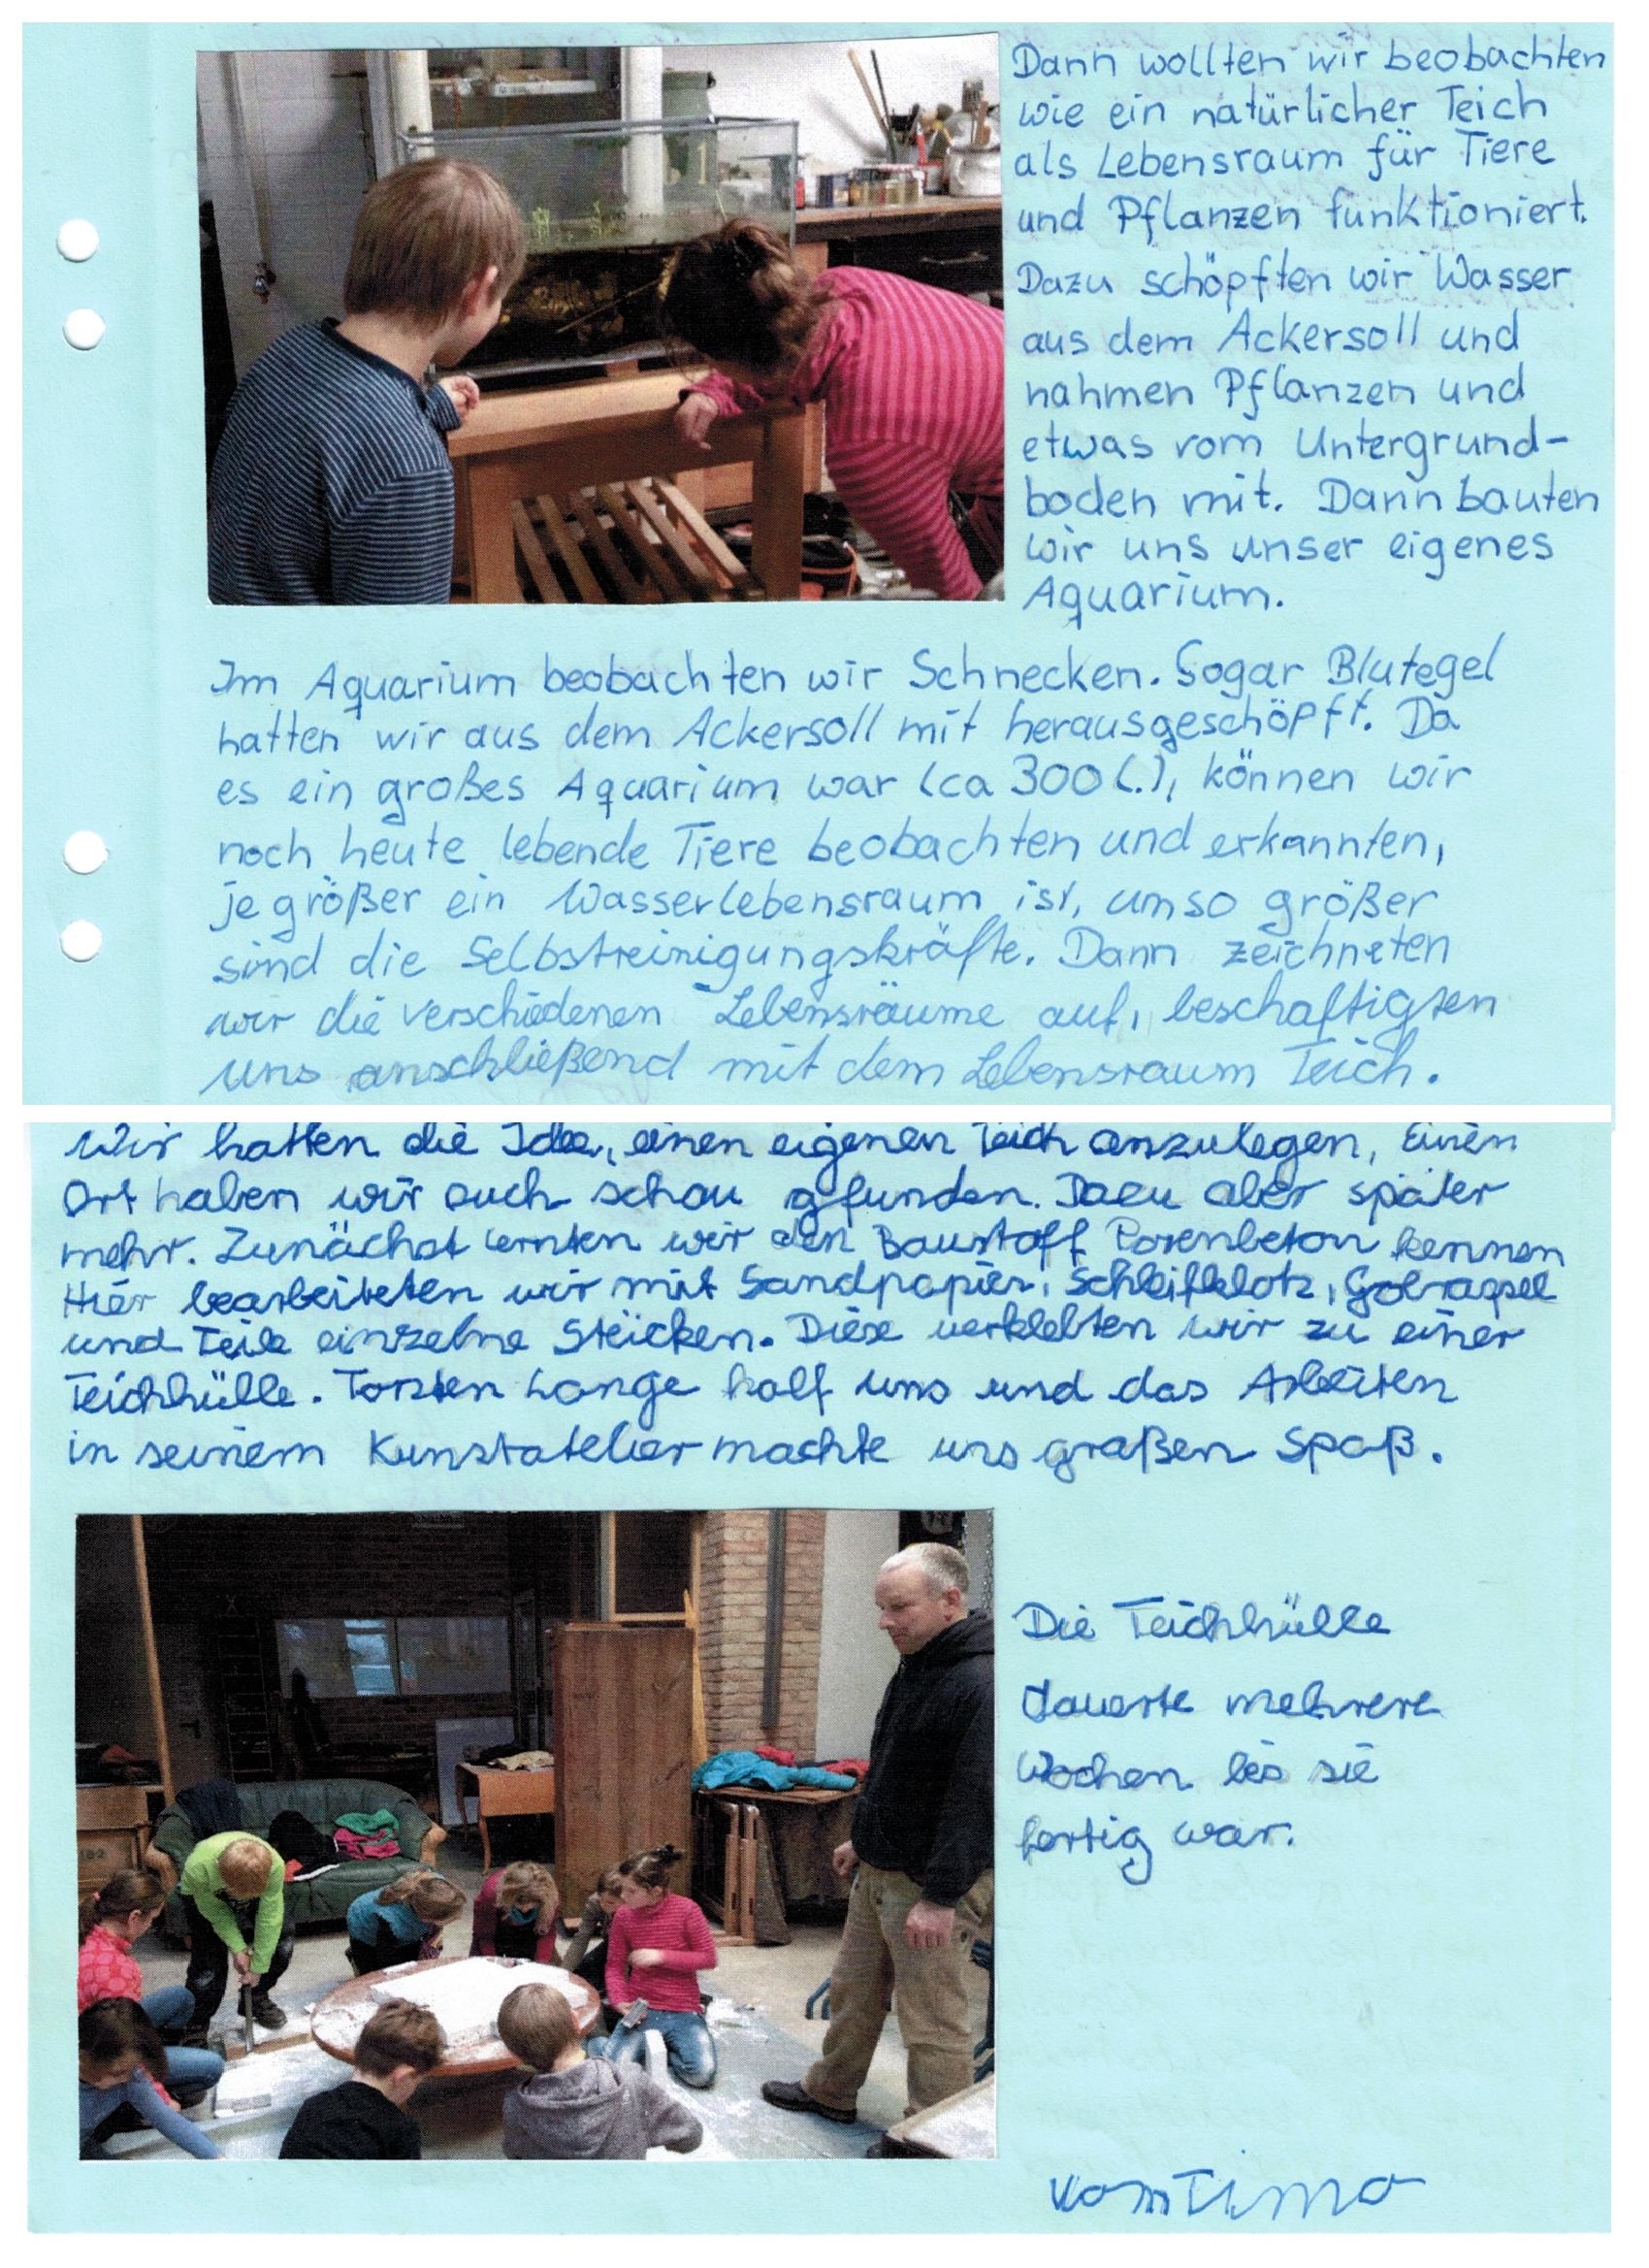 Dann wollten wir beobachten
wie ein natürlicher Teich
als Lebensraum für Tiere
und Pflanzen funktioniert.
Dazu schöpften wir Wasser
aus dem Ackersoll und
nahmen Pflanzen und
etwas vom Untergrund-
boden mit. Dann bauten
wir uns unser eigenes
Aquarium.
Im Aquarium beobachten wir Schnecken. Sogar Blutegel
hatten wir aus dem Ackersoll mit herausgeschöpft. Da
es ein großes Aquarium war (ca 300 l.), können wir
noch heute lebende Tiere beobachten und erkannten,
je größer ein Wasserlebensraum ist, umso größer
sind die Selbstreinigungskräfte. Dann zeichneten
wir die verschiedenen Lebensräume auf, beschaftigten
uns anschließend mit dem Lebensraum Teich.
Wir hatten die Idee, einen eigenen Teich anzulegen, Einen
Ort haben wir auch schon gfunden. Dazu aber später
mehr. Zunächst lernten wir den Baustoff Porenbeton kennen
Hier bearbeiteten wir mit Sandpapier, Schleifklotz,
und Teile einzelne Stücken. Diese verklebten wir zu einer
Teichhülle. Torsten Lange half uns und das Arbeiten
in seinem Kunstatelier machte uns großen Spaß.
Die Teichhülle
dauerte mehrere
Wochen bis sie
fertig war.
Vom Timo